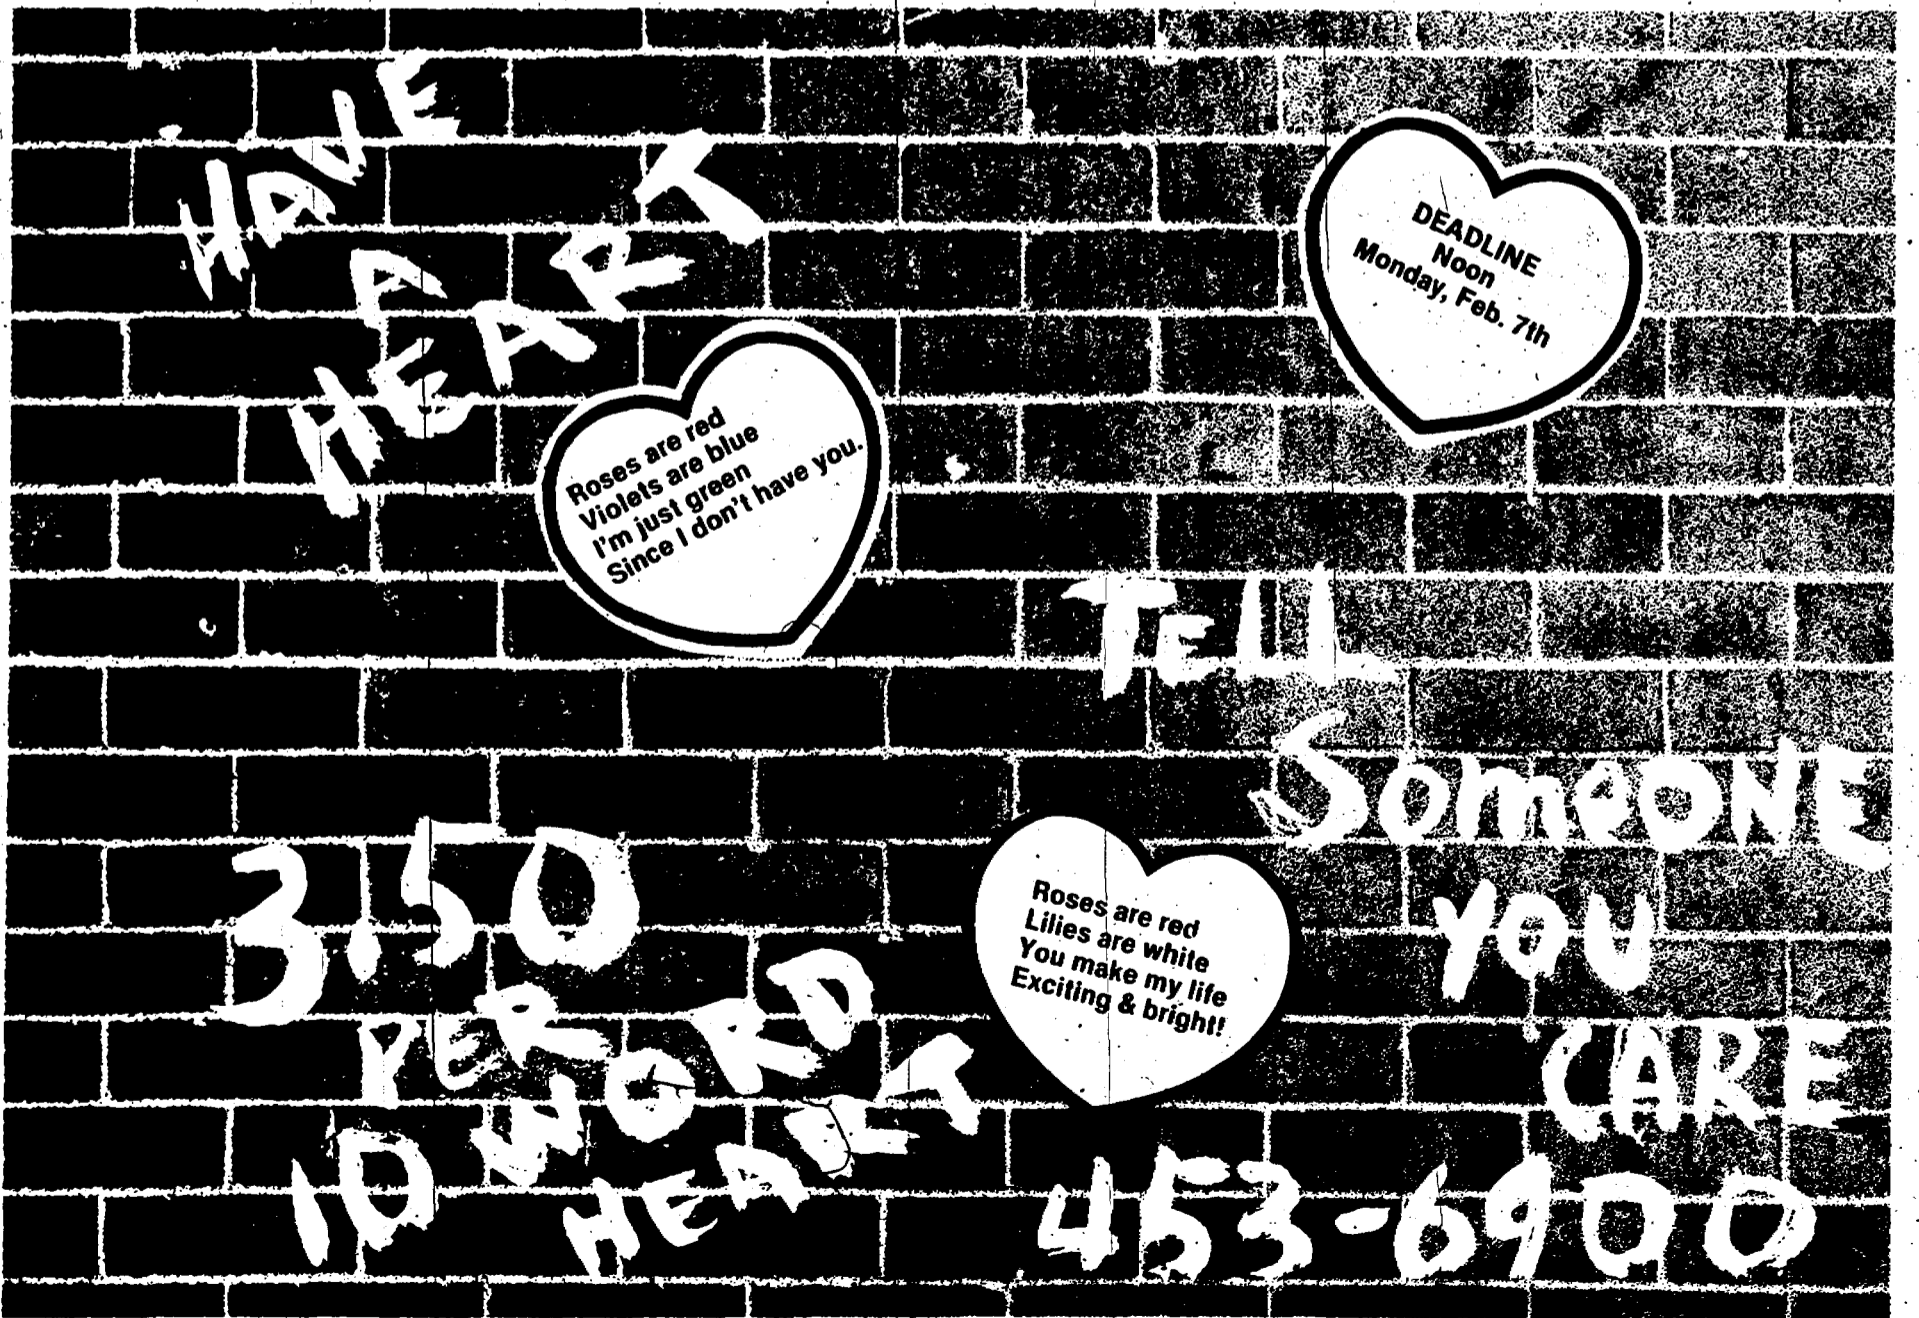 HAVE
A
HEART
DEADLINE
Noon
Monday, Feb. 7th
Roses are red
Violets are blue
I'm just green
Since I don't have you.
TELL
SomeONE
YOU
CARE
3.50
PER
10 WORD
HEART
Roses are red
Lilies are white
You make my life
Exciting & bright!
453-6900